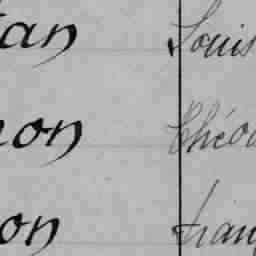 tan Louis
non Théo
on Fran